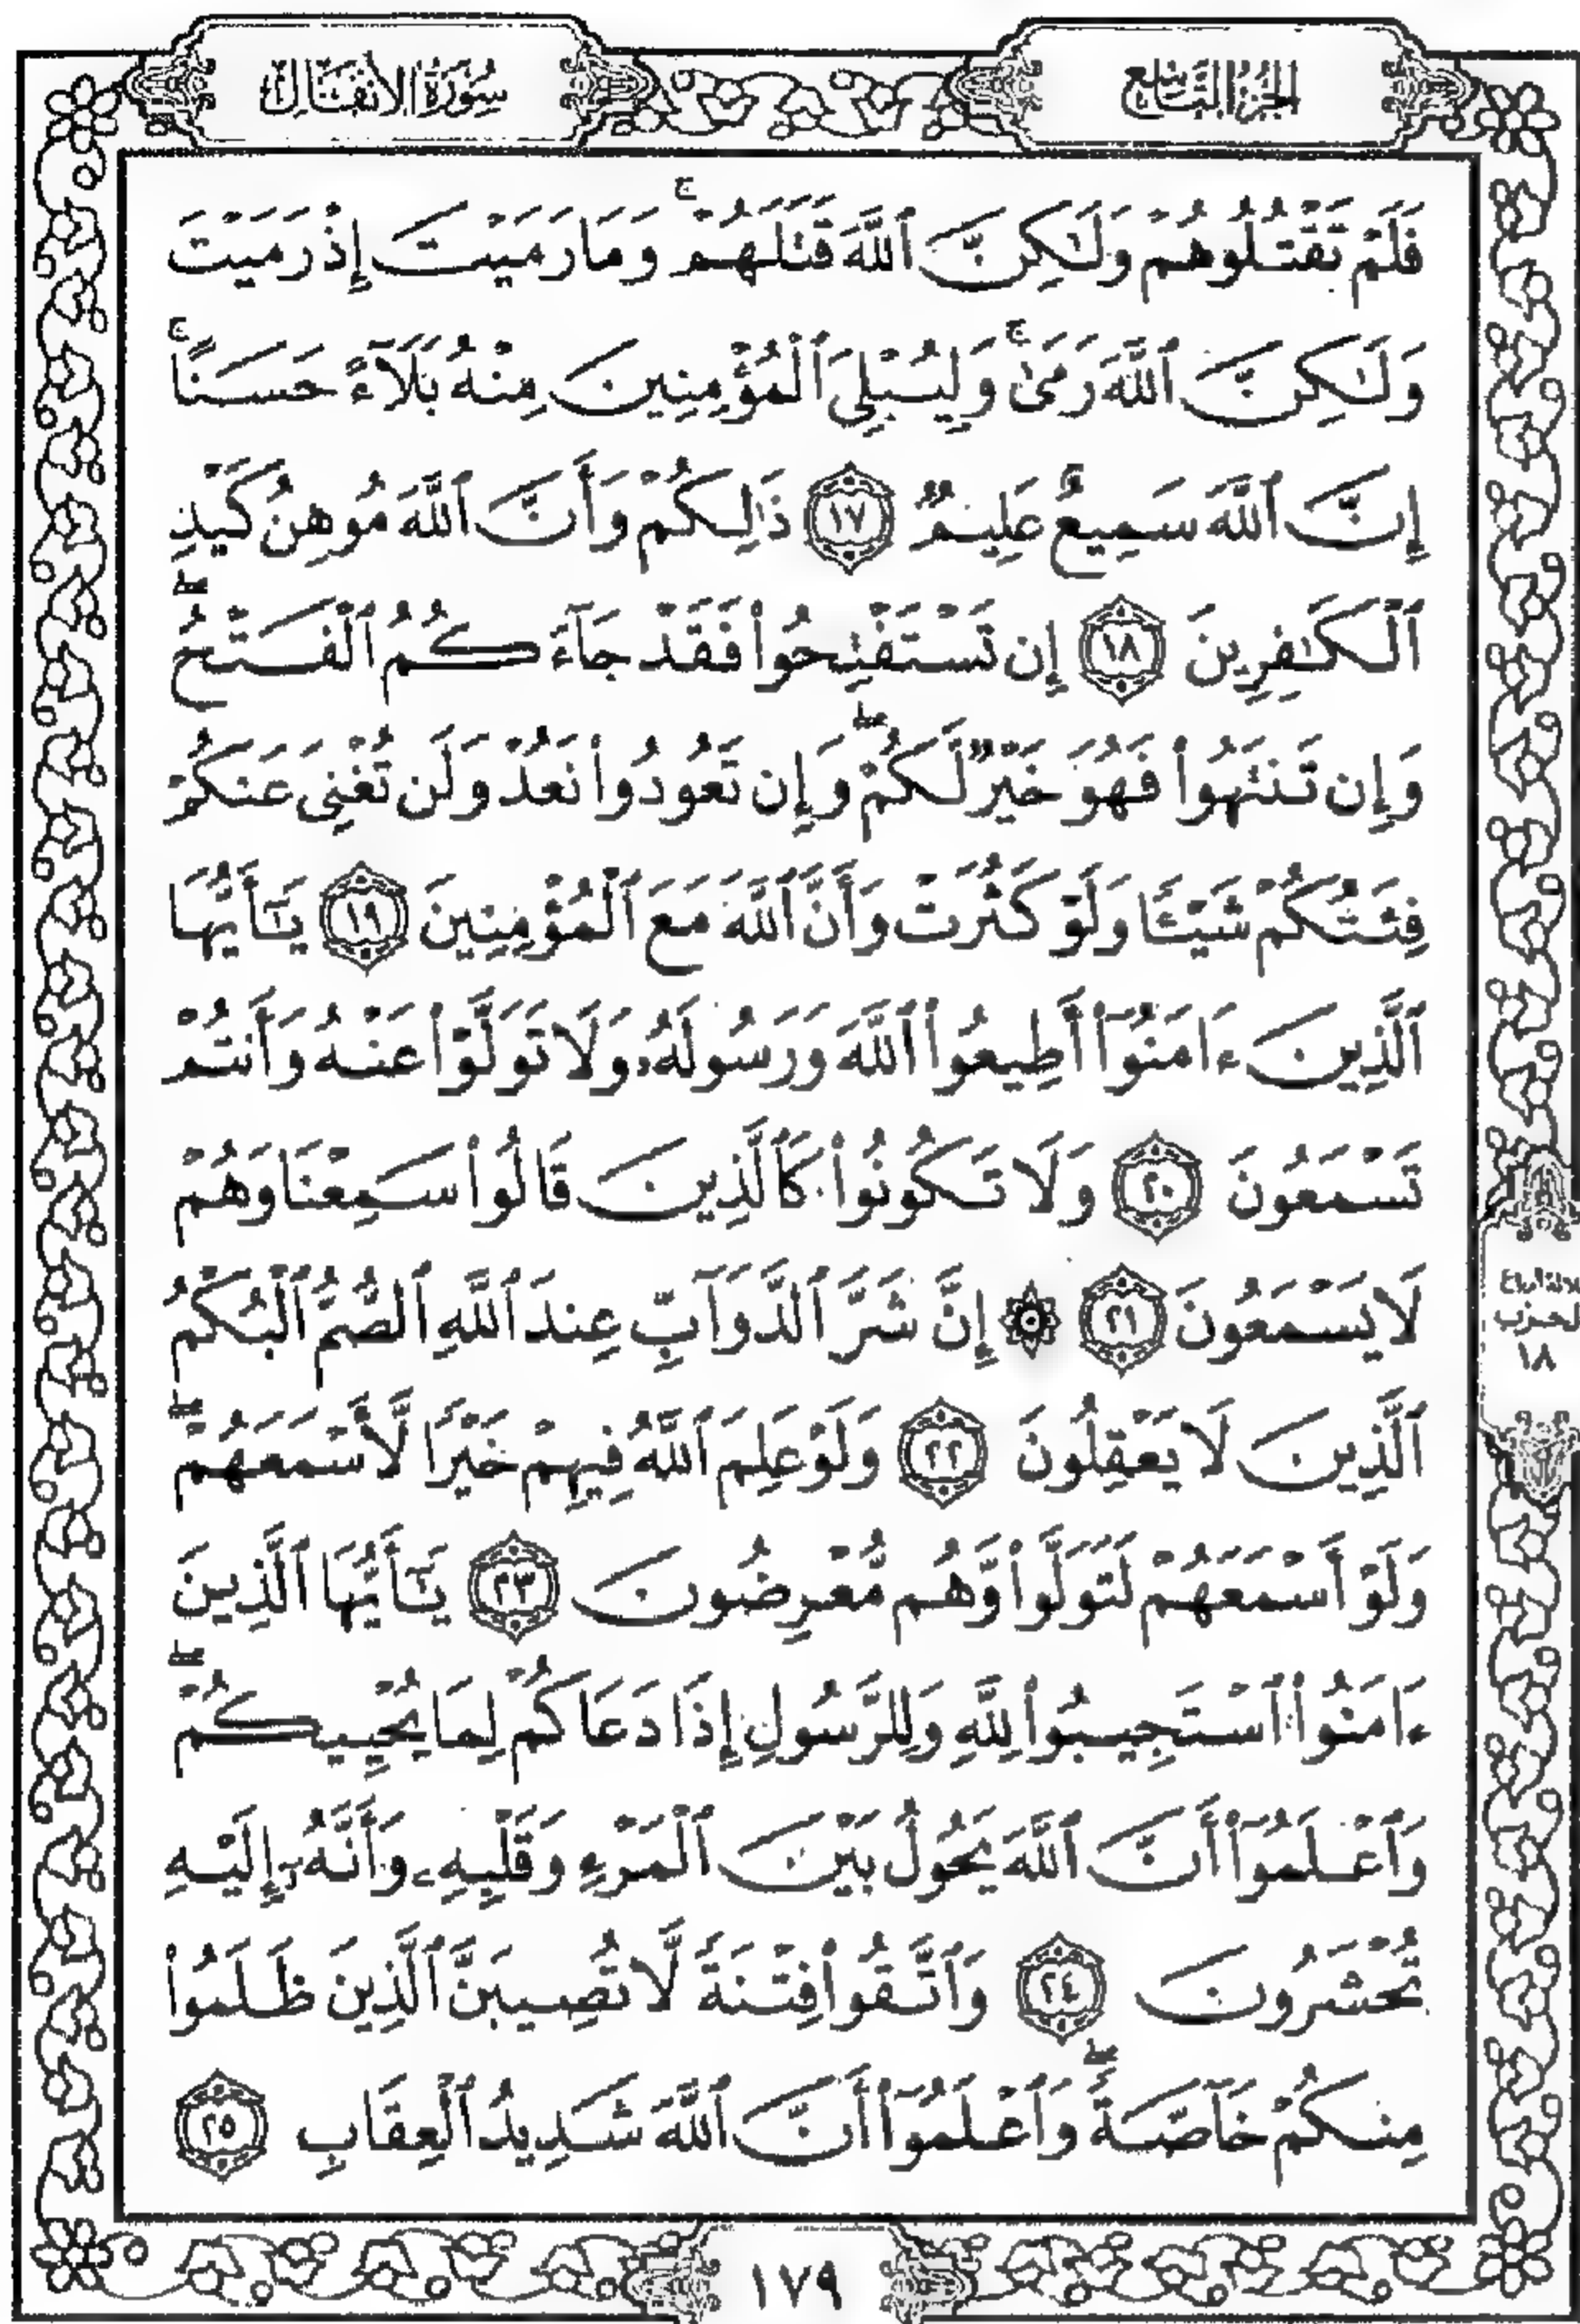 الجزء التاسع
سورة الأنفال
فَلَمْ تَقْتُلُوهُمْ وَلَٰكِنَّ ٱللَّهَ قَتَلَهُمْ ۚ وَمَا رَمَيْتَ إِذْ رَمَيْتَ
وَلَٰكِنَّ ٱللَّهَ رَمَىٰ ۚ وَلِيُبْلِىَ ٱلْمُؤْمِنِينَ مِنْهُ بَلَآءً حَسَنًا ۚ
إِنَّ ٱللَّهَ سَمِيعٌ عَلِيمٌ ١٧ ذَٰلِكُمْ وَأَنَّ ٱللَّهَ مُوهِنُ كَيْدِ
ٱلْكَٰفِرِينَ ١٨ إِن تَسْتَفْتِحُوا۟ فَقَدْ جَآءَكُمُ ٱلْفَتْحُ ۖ
وَإِن تَنتَهُوا۟ فَهُوَ خَيْرٌ لَّكُمْ ۖ وَإِن تَعُودُوا۟ نَعُدْ وَلَن تُغْنِىَ عَنكُمْ
فِئَتُكُمْ شَيْـًٔا وَلَوْ كَثُرَتْ وَأَنَّ ٱللَّهَ مَعَ ٱلْمُؤْمِنِينَ ١٩ يَٰٓأَيُّهَا
ٱلَّذِينَ ءَامَنُوٓا۟ أَطِيعُوا۟ ٱللَّهَ وَرَسُولَهُۥ وَلَا تَوَلَّوْا۟ عَنْهُ وَأَنتُمْ
تَسْمَعُونَ ٢٠ وَلَا تَكُونُوا۟ كَٱلَّذِينَ قَالُوا۟ سَمِعْنَا وَهُمْ
لَا يَسْمَعُونَ ٢١ ۞ إِنَّ شَرَّ ٱلدَّوَآبِّ عِندَ ٱللَّهِ ٱلصُّمُّ ٱلْبُكْمُ
ٱلَّذِينَ لَا يَعْقِلُونَ ٢٢ وَلَوْ عَلِمَ ٱللَّهُ فِيهِمْ خَيْرًا لَّأَسْمَعَهُمْ ۖ
وَلَوْ أَسْمَعَهُمْ لَتَوَلَّوا۟ وَّهُم مُّعْرِضُونَ ٢٣ يَٰٓأَيُّهَا ٱلَّذِينَ
ءَامَنُوا۟ ٱسْتَجِيبُوا۟ لِلَّهِ وَلِلرَّسُولِ إِذَا دَعَاكُمْ لِمَا يُحْيِيكُمْ ۖ
وَٱعْلَمُوٓا۟ أَنَّ ٱللَّهَ يَحُولُ بَيْنَ ٱلْمَرْءِ وَقَلْبِهِۦ وَأَنَّهُۥٓ إِلَيْهِ
تُحْشَرُونَ ٢٤ وَٱتَّقُوا۟ فِتْنَةً لَّا تُصِيبَنَّ ٱلَّذِينَ ظَلَمُوا۟
مِنكُمْ خَآصَّةً ۖ وَٱعْلَمُوٓا۟ أَنَّ ٱللَّهَ شَدِيدُ ٱلْعِقَابِ ٢٥
١٨
١٧٩